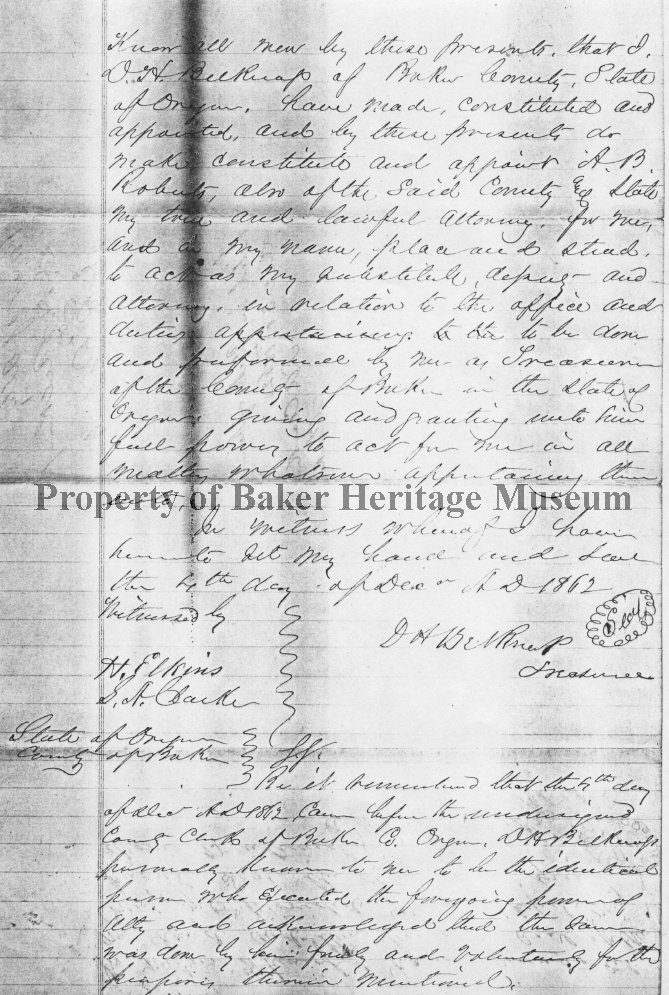 Know all men by these presents. that I.
D. H. Belknap of Baker County, State
of Oregon, have made, constituted and
appointed, and by these presents do
make constitute and appoint A. B.
Roberts, also of the Said County & State
my true and lawful attorney. for me,
and in my name, place and stead.
to act as my substitute, deputy and
attorney, in relation to the office and
duties appertaining to be done
and performed by me as Treasurer
of the County of Baker in the State of
Oregon giving and granting unto him
full power to act for me in all
matters whatsoever appertaining there
Property of Baker Heritage Museum
In witness whereof I have
hereunto set my hand and seal
the day of Dec A D 1862
Witnessed by
D H Belknap
Seal
Treasurer
H. Elkins
S. A. Clarke
State of Oregon
County of Baker
SS.
Be it remembered that the day
of Dec A D 1862 Came before the undersigned
County Clerk of Baker Co. Oregon, D H Belknap
personally known to me to be the identical
person who Executed the foregoing power of
Atty and acknowledged that the same
was done by him freely and Voluntarily for the
purposes therein mentioned.